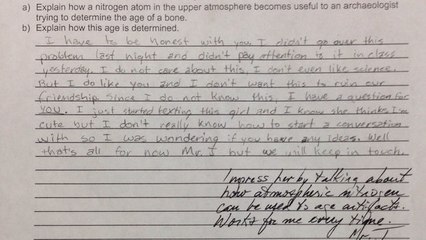 a) Explain how a nitrogen atom in the upper atmosphere becomes useful to an archaeologist
trying to determine the age of a bone.
b) Explain how this age is determined.
I have to be honest with you I didn't go over this
problem last night and didn't pay attention is it in class
yesterday. I do not care about this, I don't even like science.
But I do like you and I don't want this to ruin our
friendship. Since I do not know this, I have a question for
YOU. I just started texting this girl and I know she thinks I'm
cute but I don't really know how to start a conversation
with so I was wondering if you have any ideas. Well
that's all for now Mr. T but we will keep in touch.
Impress her by talking about
how atmospheric nitrogen
can be used to age artifacts.
Works for me every time.
Mr. T